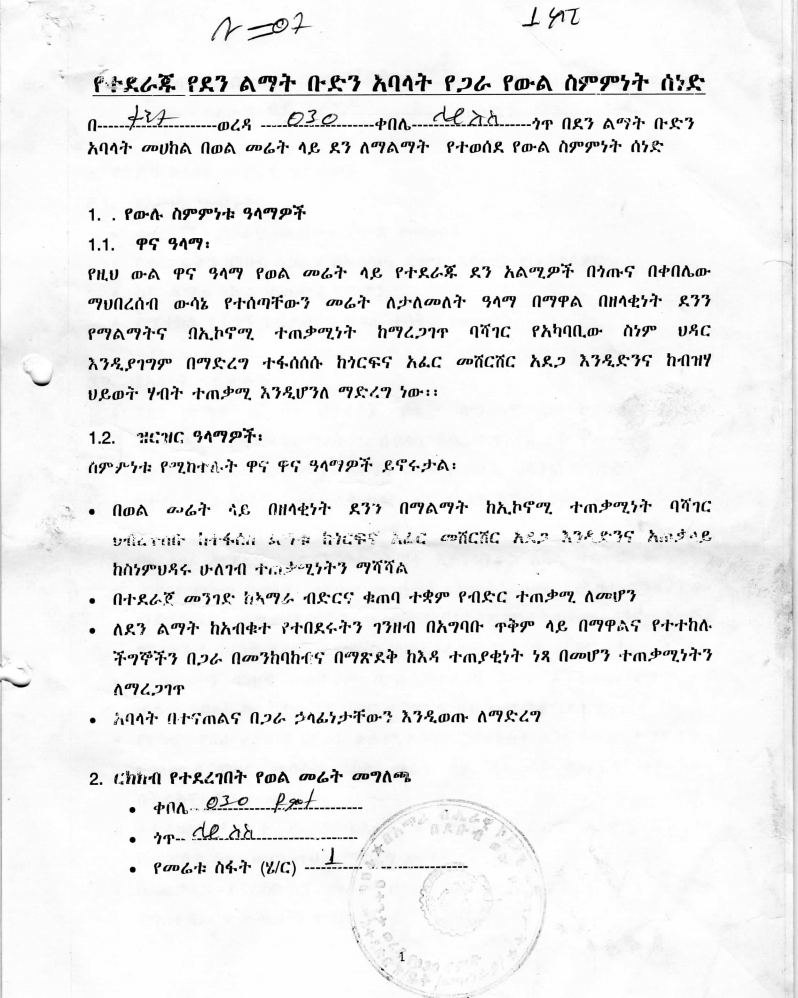 የተደራጁ የደን ልማት ቡድን አባላት የጋራ የውል ስምምነት ሰነድ
በ---------------ወረዳ --- 030 ---ቀበሌ---------------ጎጥ በደን ልማት ቡድን
አባላት መሀከል በወል መሬት ላይ ደን ለማልማት የተወሰደ የውል ስምምነት ሰነድ
1. . የውሉ ስምምነቱ ዓላማዎች
1.1. ዋና ዓላማ፡
የዚህ ውል ዋና ዓላማ የወል መሬት ላይ የተደራጁ ደን አልሚዎች በጎጡና በቀበሌው
ማህበረሰብ ውሳኔ የተሰጣቸውን መሬት ለታለመለት ዓላማ በማዋል በዘላቂነት ደንን
የማልማትና በኢኮኖሚ ተጠቃሚነት ከማረጋገጥ ባሻገር የአካባቢው ስነም ህዳር
እንዲያገግም በማድረግ ተፋሰሰሱ ከጎርፍና አፈር መሸርሸር አደጋ እንዲድንና ከብዝሃ
ህይወት ሃብት ተጠቃሚ እንዲሆንለ ማድረግ ነው፡፡
1.2. ዝርዝር ዓላማዎች፡
ስምምነቱ የሚከተሉት ዋና ዋና ዓላማዎች ይኖሩታል፡
• በወል መሬት ላይ በዘላቂነት ደንን በማልማት ከኢኮኖሚ ተጠቃሚነት ባሻገር
ከጎርፍና አፈር መሸርሸር አደጋ እንዲድንና አጠቃላይ
ከስነምህዳሩ ሁለገብ ተጠቃሚነትን ማሻሻል
• በተደራጀ መንገድ ከአማራ ብድርና ቁጠባ ተቋም የብድር ተጠቃሚ ለመሆን
• ለደን ልማት ከአብቁተ የተበደሩትን ገንዘብ በአግባቡ ጥቅም ላይ በማዋልና የተተከሉ
ችግኞችን በጋራ በመንከባከብና በማጽደቅ ከእዳ ተጠያቂነት ነጻ በመሆን ተጠቃሚነትን
ለማረጋገጥ
• አባላት በተናጠልና በጋራ ኃላፊነታቸውን እንዲወጡ ለማድረግ
2. ርክክብ የተደረገበት የወል መሬት መግለጫ
• ቀበሌ-- 030 ---------------
• ጎጥ-- ---------------
• የመሬቱ ስፋት (ሄ/ር) --- 1 ---------------
1